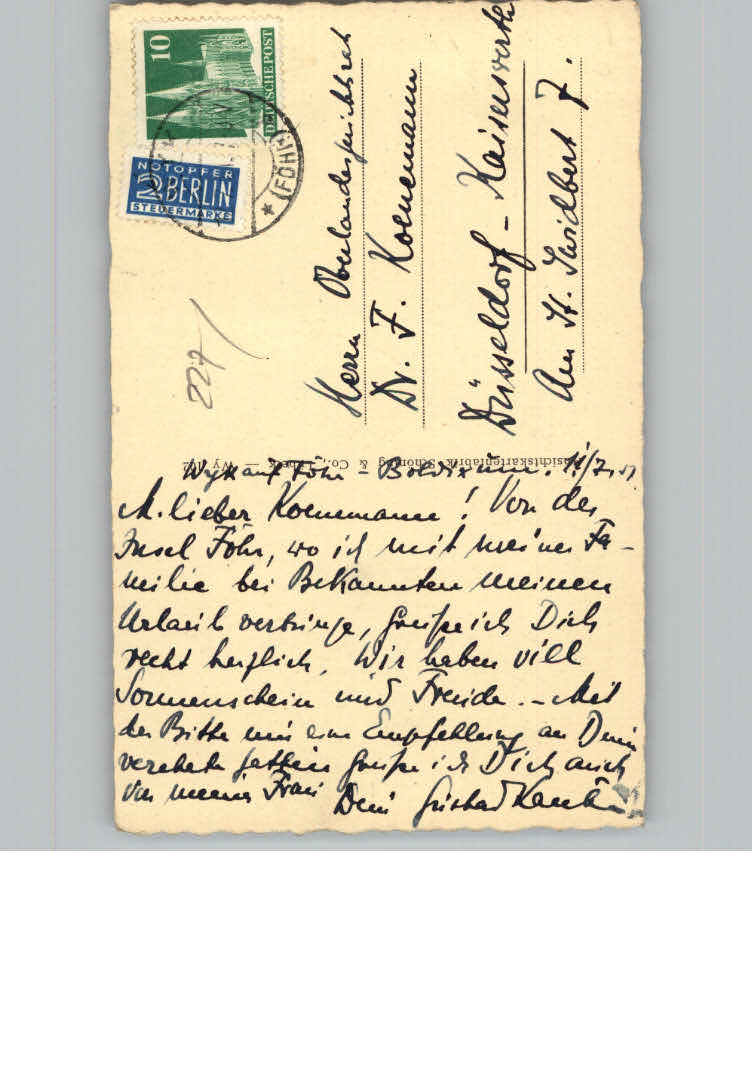 10
DEUTSCHE POST
NOTOPFER
2 BERLIN
STEUERMARKE
(FÖHR)
227
Herrn Oberlandesgerichtsrat
Dr. F. Koenemann
Düsseldorf - Kaiserswerth
Am St. Swidbert 7.
Ansichtskartenfabrik Schöning & Co., Lübeck — Wy 102
Wyk auf Föhr - Boldixum. 11/7.51.
M. lieber Koenemann! Von der
Insel Föhr, wo ich mit meiner Fa-
milie bei Bekannten meinen
Urlaub verbringe, grüße ich Dich
recht herzlich. Wir haben viel
Sonnenschein und Freude. - Mit
der Bitte um eine Empfehlung an Deine
verehrte Gattin grüße ich Dich auch
von meiner Frau
Dein